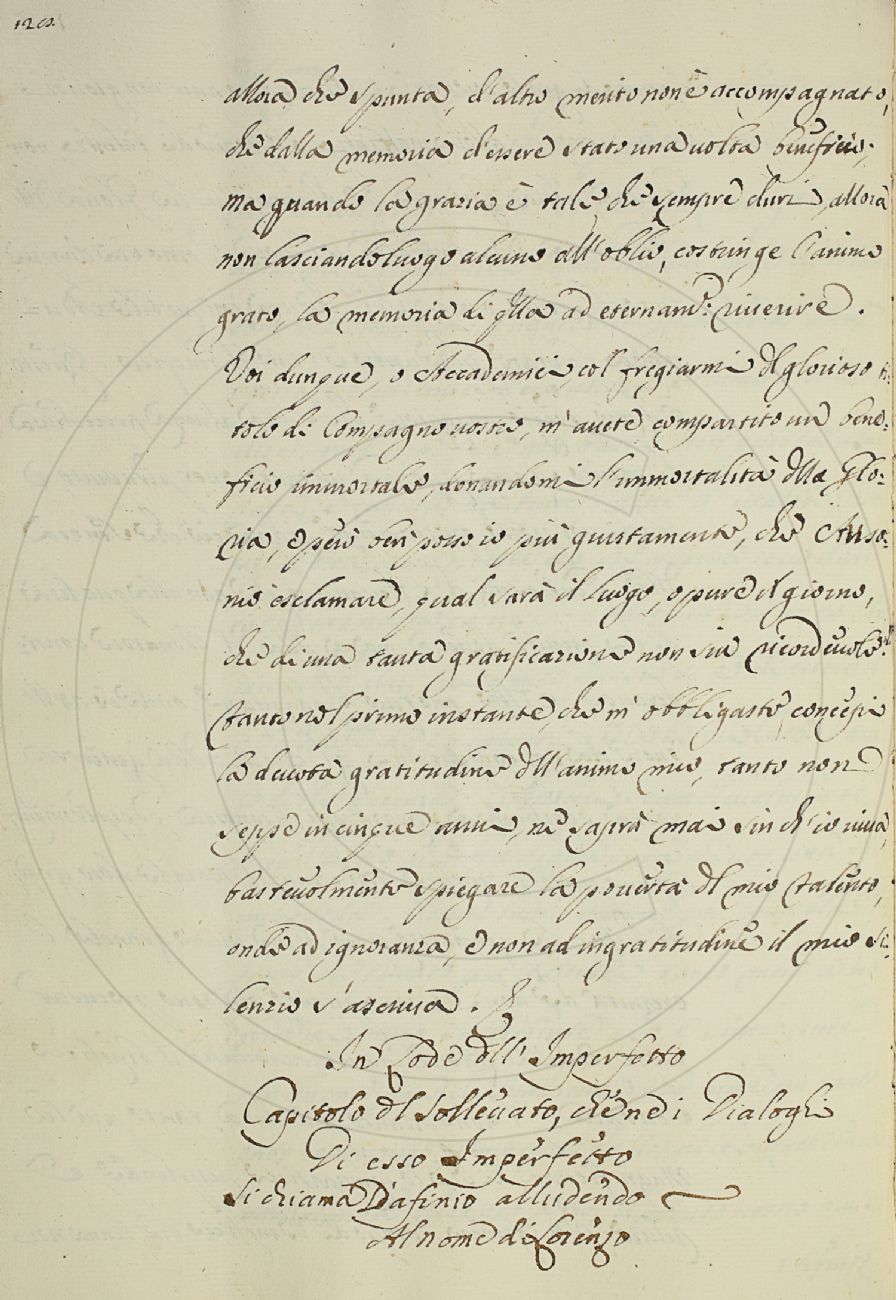 allora che spunta, d'altro merito non è accompagnato,
che dalla memoria d'essere stato una uolta beneficio;
ma quando la grazia è tale che sempre duri, allora
non lasciando luogo alcuno all'oblio, costringe l'animo
grato, la memoria di qlla ad eternamte: riuerire.
Voi dunque, o Accademici, col fregiarmi dl glorioso ti:
tolo di Compagno uostro, m'auete compartito un bene:
ficio immortale, donandomi l'immortalità dlla Glo:
ria, e però ben posso io più giustamente, che Auso:
nio esclamare, qual sarà il luogo, o pure il giorno,
che di una tanta gratificazione non sia ricordeuole?
Tanto nel primo instante, che m'obbligaste, concepì
la deuota gratitudine dll'animo mio, tanto non
seppe in cinque anni, ne saprà mai sin ch'io uiua,
basteuolmente spiegare la pouertà dl mio talento,
onde ad ignoranza, e non ad ingratitudine il mio si:
lenzio s'ascriua.
In Lode dll' Imperfetto
Capitolo dl Solleuato, che ne i Dialoghi
Di esso Imperfetto
Si chiama Dafinio alludendo
Al nome di Lorenzo